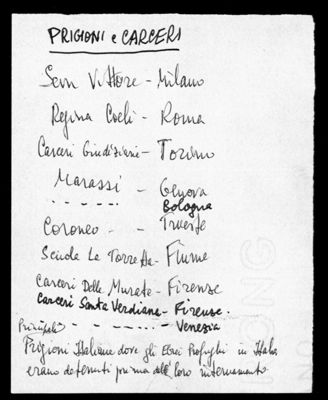 PRIGIONI e CARCERI
San Vittore - Milano
Regina Coeli - Roma
Carceri Giudiziarie - Torino
Marassi - Genova
- - - - - - Bologna
Coroneo - - Trieste
Scuola La Torretta - Fiume
Carceri Delle Murate - Firenze
Carceri Santa Verdiana - Firenze.
Principali - - - - - - Venezia
Prigioni Italiane dove gli Ebrei Profughi in Italia
erano detenuti prima del loro internamento